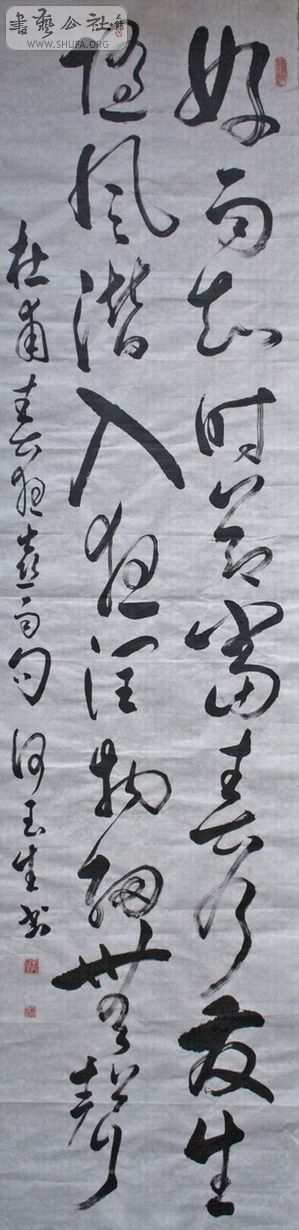 書藝公社
WWW.SHUFA.ORG
好雨知时节當春乃发生
随风潜入夜润物细無聲
杜甫春夜喜雨句 何玉生书